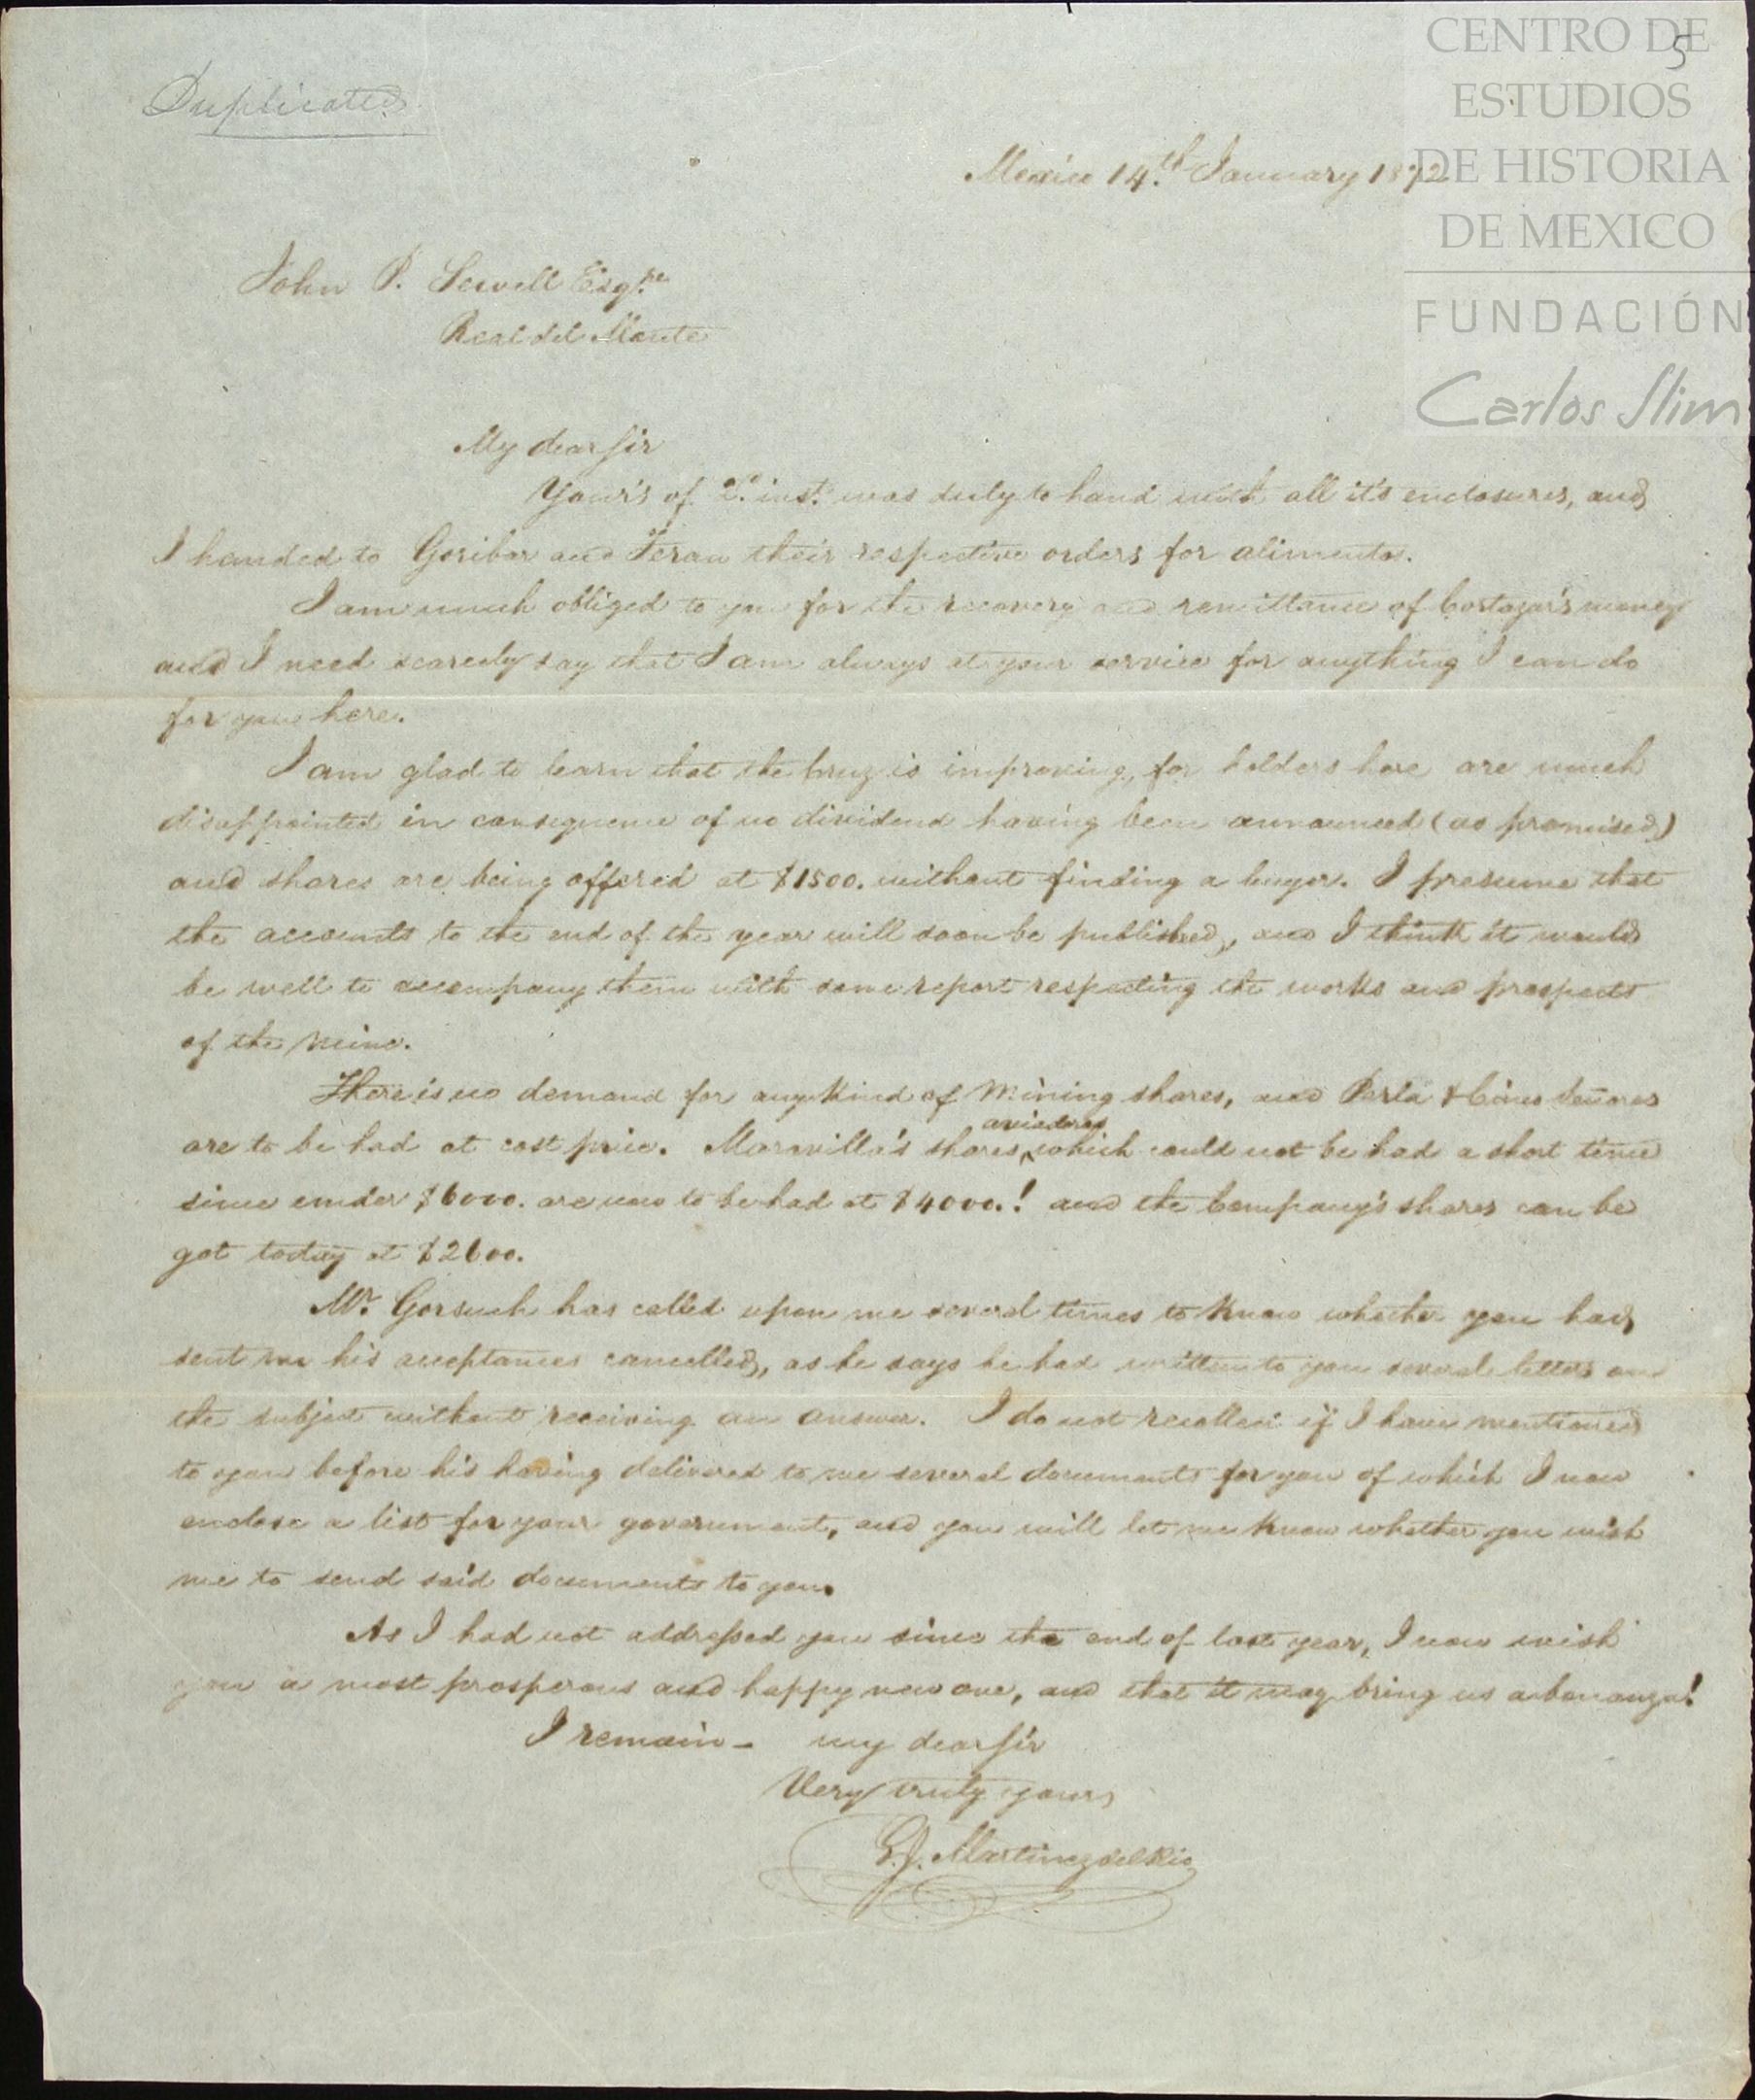 CENTRO DE
ESTUDIOS
DE HISTORIA
DE MEXICO
FUNDACIÓN
Carlos Slim
5
Duplicate
Mexico 14th January 1872
John P. Sewell Esqre
Real del Monte
My dear Sir
Your's of 2d inst. was duly to hand with all it's enclosures, and
I handed to Goribar and Teran their respective orders for alimentos.
I am much obliged to you for the recovery and remittance of Cortazar's money
and I need scarcely say that I am always at your service for anything I can do
for you here.
I am glad to learn that the Cruz is improving, for holders here are much
disappointed in consequence of no dividend having been announced (as promised)
and shares are being offered at $1500. without finding a buyer. I presume that
the accounts to the end of the year will soon be published, and I think it would
be well to accompany them with some report respecting the works and prospects
of the Mine.
There is no demand for any kind of Mining shares, and Perla & Cinco Señores
are to be had at cost price. Maravilla's shares aviadoras which could not be had a short time
since under $6000. are now to be had at $4000.! and the Company's shares can be
got today at $2600.
Mr. Gorsuch has called upon me several times to know whether you had
sent me his acceptances cancelled, as he says he had written to you several letters on
the subject without receiving an answer. I do not recollect if I have mentioned
to you before his having delivered to me several documents for you of which I now
enclose a list for your government, and you will let me know whether you wish
me to send said documents to you.
As I had not addressed you since the end of last year, I now wish
you a most prosperous and happy new one, and that it may bring us a bonanza!
I remain - my dear Sir
Very truly yours
G. J. Martinez del Rio